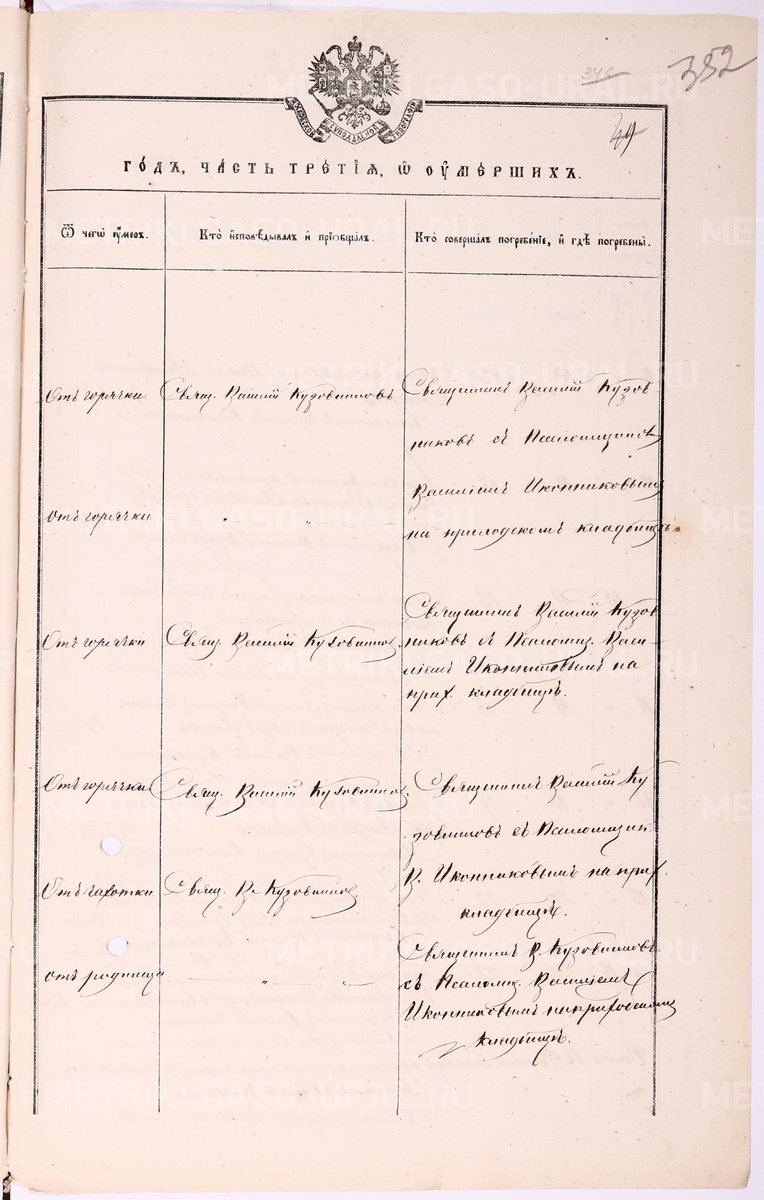 346
352
49
ГОДЪ, ЧАСТЬ ТРЕТІЯ, Ѿ ОУМЕРШИХЪ.
Ѿ чегѡ оумеръ.
Кто исповѣдывалъ и пріобщалъ.
Кто совершалъ погребеніе, и гдѣ погребены.
Отъ горячки.
Свящ. Василій Кузовниковъ
Священникъ Василій Кузов
никовъ съ Псаломщикомъ
Василіемъ Иконниковымъ
на приходскомъ кладбищѣ.
Отъ горячки
„
Отъ горячки
Свящ. Василій Кузовников
Священникъ Василій Кузов
никовъ съ Псаломщ. Васи-
ліемъ Иконниковымъ на
прих. кладбищѣ.
Отъ горячки
Свящ. Василій Кузовников.
Священникъ Василій Ку
зовниковъ съ Псаломщик.
В. Иконниковымъ на прих.
кладбищѣ.
Отъ чахотки
Свящ. В. Кузовников
отъ родимца
„ „
Священникъ В. Кузовниковъ
съ Псаломщ. Василіемъ
Иконниковымъ на приходском
кладбищѣ.
METRIKI.GASO-URAL.RU